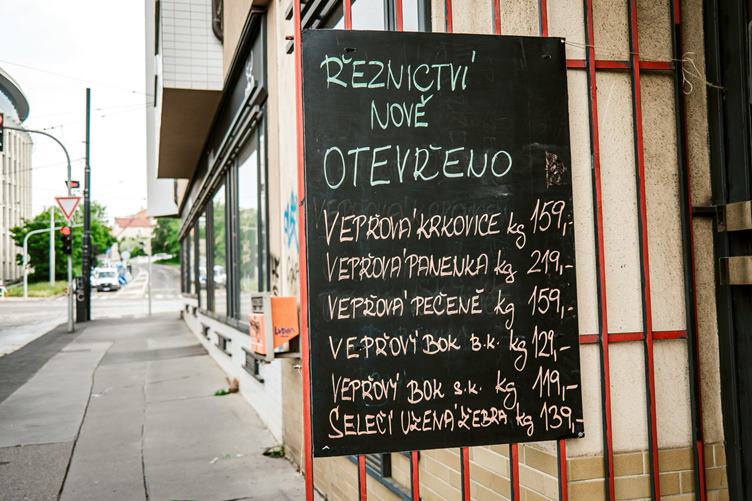 ŘEZNICTVÍ
NOVĚ
OTEVŘENO
VEPŘOVÁ KRKOVICE kg 159,-
VEPŘOVÁ PANENKA kg 219,-
VEPŘOVÁ PEČENĚ kg 159,-
VEPŘOVÝ BOK B.K. kg 129,-
VEPŘOVÝ BOK S.K. kg 119,-
SELEČÍ UZENÁ ŽEBRA kg 139,-